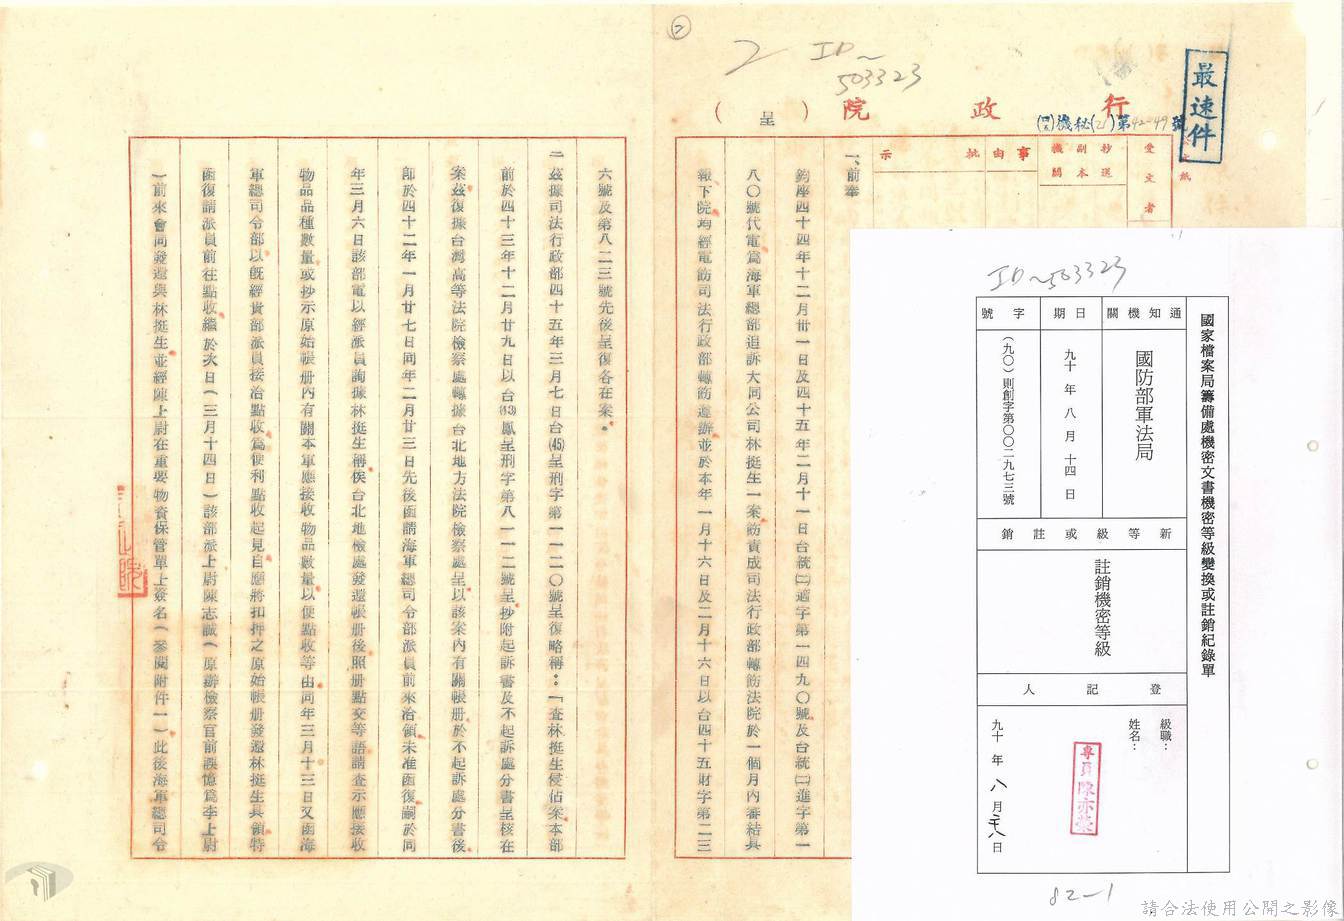 最速件
行政院
（呈）
機秘(21)第42-49號
受文者
抄送副本機關
事由
批示
2
ID~
503323
一、前奉
鈞座四十四年十二月卅一日及四十五年二月十一日台統㈡適字第一四九〇號及台統㈡進字第一
八〇號代電爲海軍總部追訴大同公司林挺生一案飭責成司法行政部轉飭法院於一個月內審結具
報下院均經電飭司法行政部轉飭遵辦並於本年一月十六日及二月十六日以台四十五財字第二三
六號及第八二三號先後呈復各在案。
二茲據司法行政部四十五年三月七日台(45)呈刑字第一一二〇號呈復略稱：「查林挺生侵佔案本部
前於四十三年十二月廿九日以台(43)鳳呈刑字第八一一二號呈抄附起訴書及不起訴處分書呈核在
案茲復據台灣高等法院檢察處轉據台北地方法院檢察處呈以該案內有關帳册於不起訴處分書後
卽於四十二年一月廿七日同年二月廿三日先後函請海軍總司令部派員前來洽領未准函復嗣於同
年三月六日該部電以經派員詢據林挺生稱俟台北地檢處發還帳册後照册點交等語請查示應接收
物品品種數量或抄示原始帳册內有關本軍應接收物品數量以便點收等由同年三月十三日又函海
軍總司令部以旣經貴部派員接洽點收爲便利點收起見自應將扣押之原始帳册發還林挺生具領特
函復請派員前往點收繼於次日（三月十四日）該部派上尉陳志誠（原辦檢察官前誤憶爲李上尉
）前來會同發還與林挺生並經陳上尉在重要物資保管單上簽名（參閱附件一）此後海軍總司令
ID~503323
國家檔案局籌備處機密文書機密等級變換或註銷紀錄單
通知機關
國防部軍法局
日期
九十年八月十四日
字號
（九〇）則創字第〇〇二九七三號
新等級或註銷
註銷機密等級
登記人
級職：
姓名：
九十年八月
日
82-1
請合法使用公開之影像